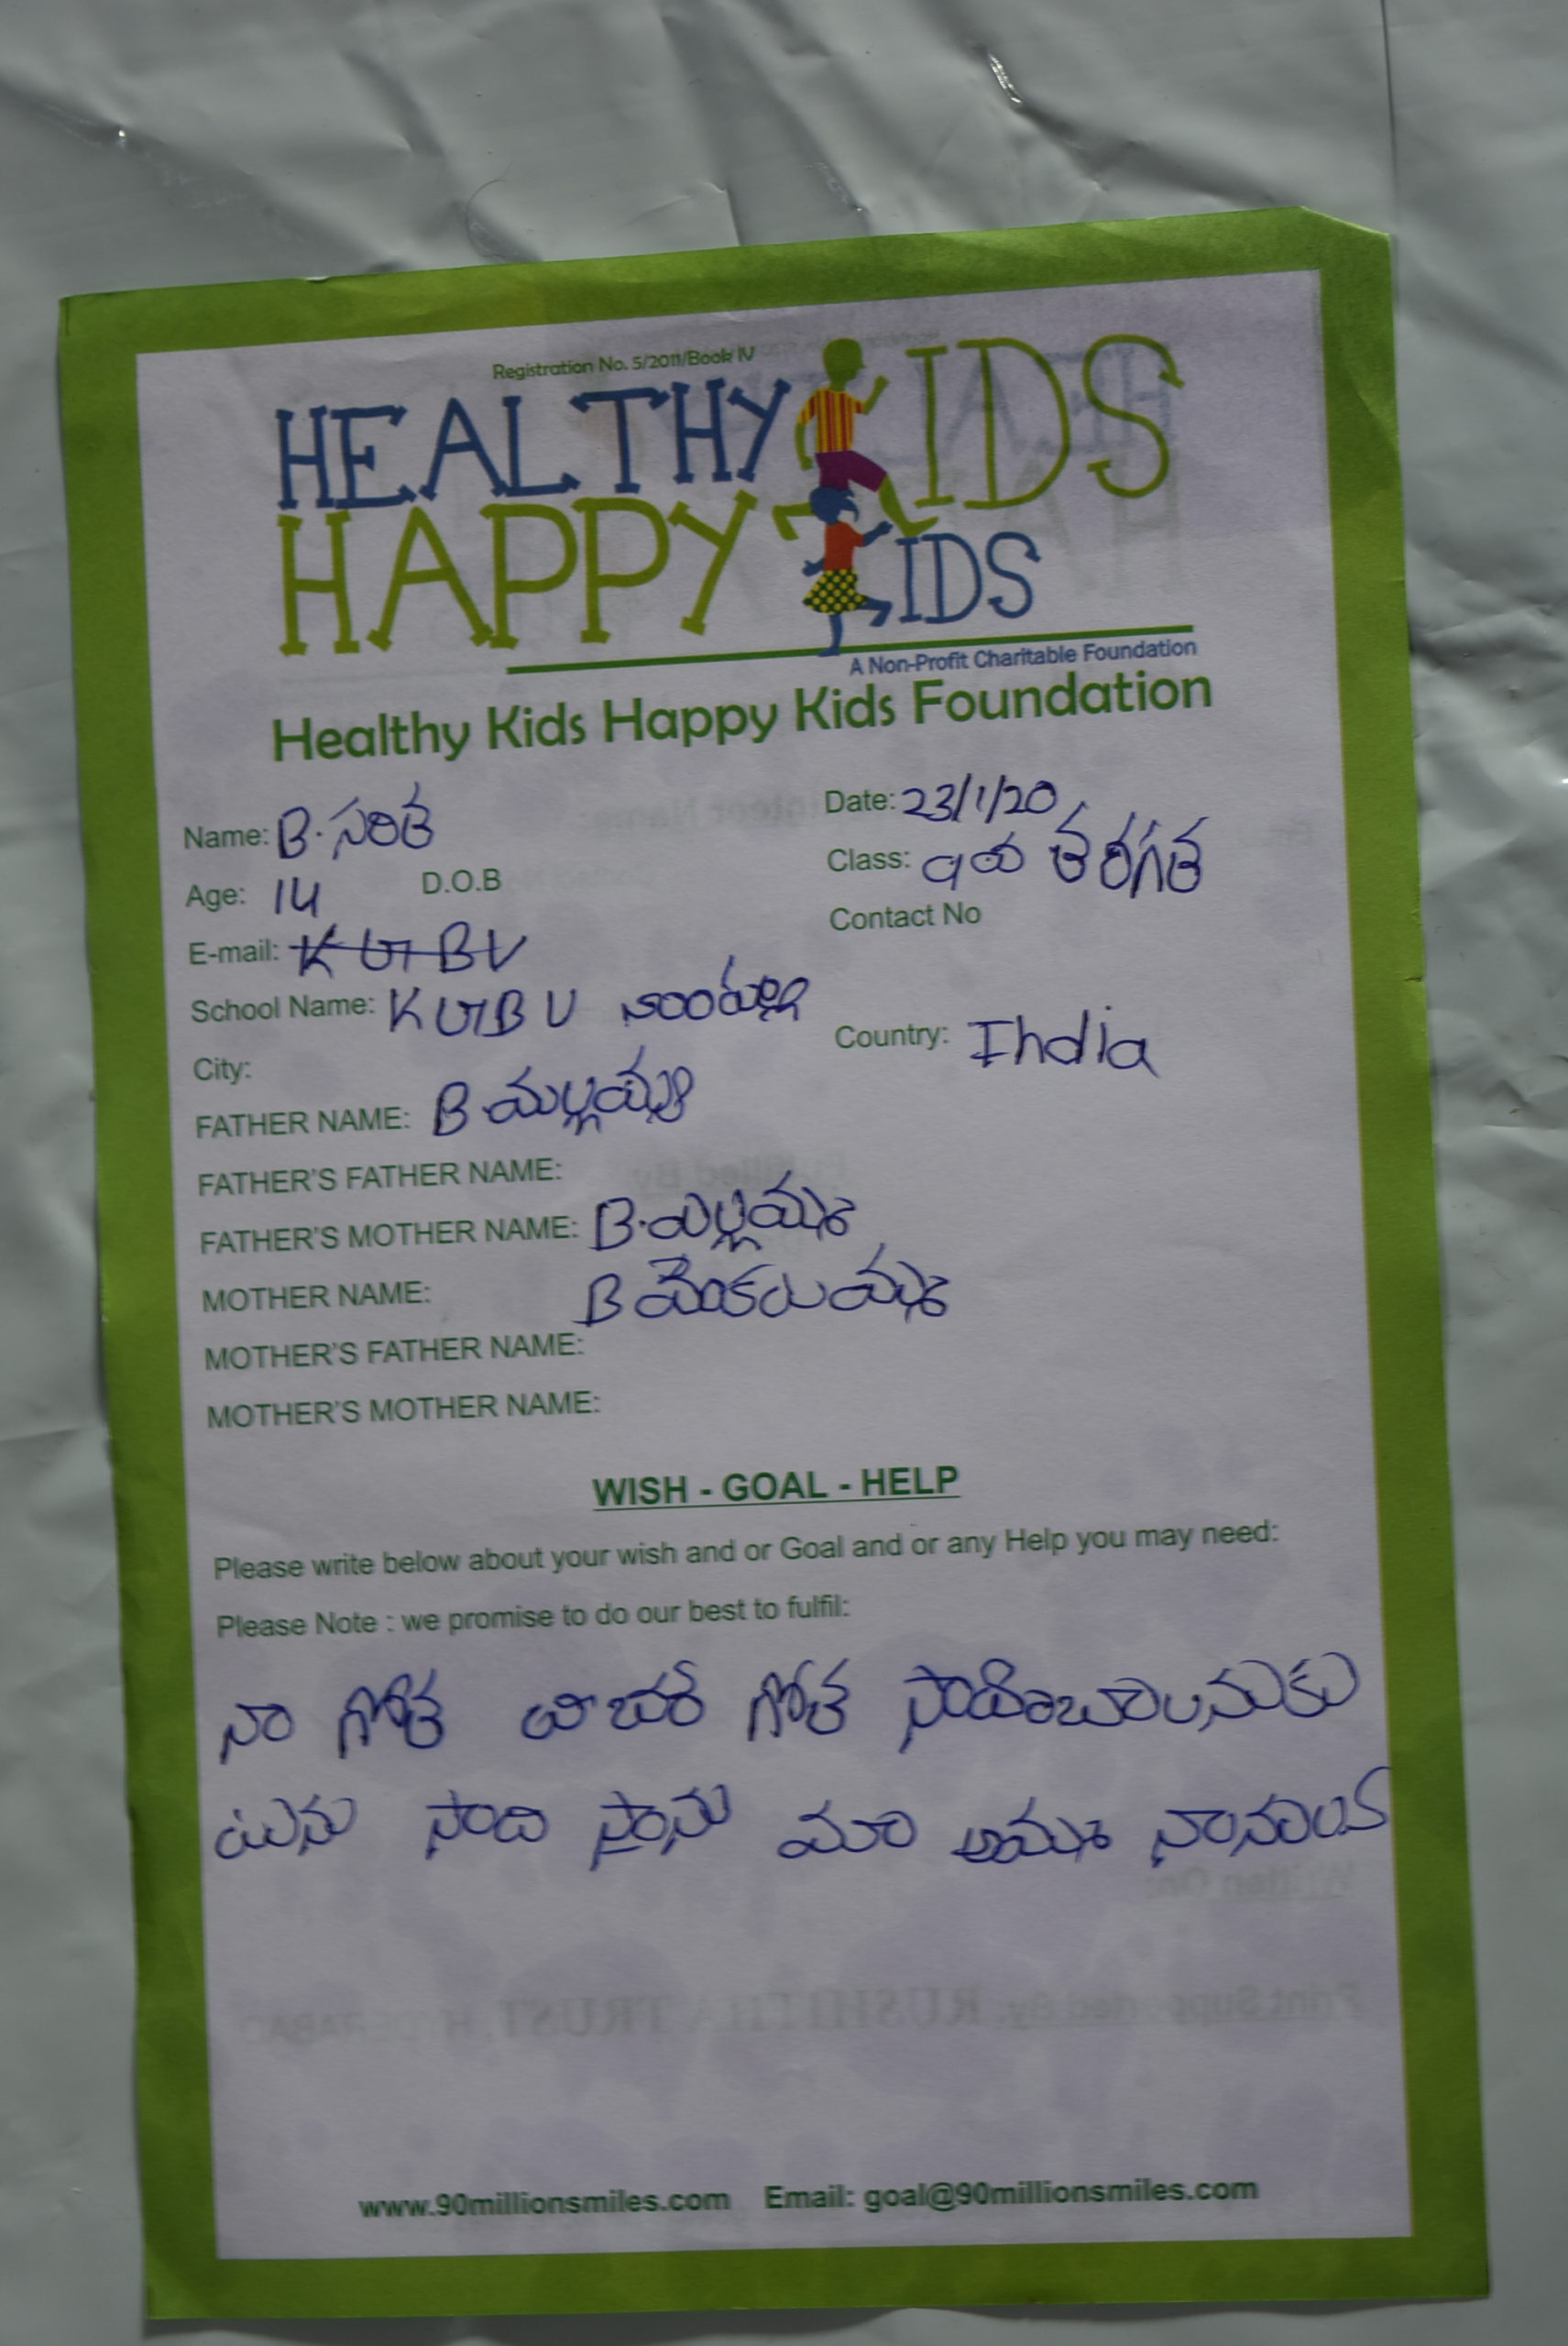 Registration No. 5/2011/Book IV
HEALTHY KIDS
HAPPY KIDS
A Non-Profit Charitable Foundation
Healthy Kids Happy Kids Foundation
Name: B. సరిత
Date: 23/1/20
Age: 14 D.O.B
Class: 9వ తరగతి
E-mail: KGBV
Contact No
School Name: KGBV
City:
Country: India
FATHER NAME: B మల్లయ్య
FATHER'S FATHER NAME:
FATHER'S MOTHER NAME: B. ఎల్లమ్మ
MOTHER NAME: B వెంకటమ్మ
MOTHER'S FATHER NAME:
MOTHER'S MOTHER NAME:
WISH - GOAL - HELP
Please write below about your wish and or Goal and or any Help you may need:
Please Note : we promise to do our best to fulfil:
నా గోల్
గోల్
మా అమ్మ
www.90millionsmiles.com Email: goal@90millionsmiles.com